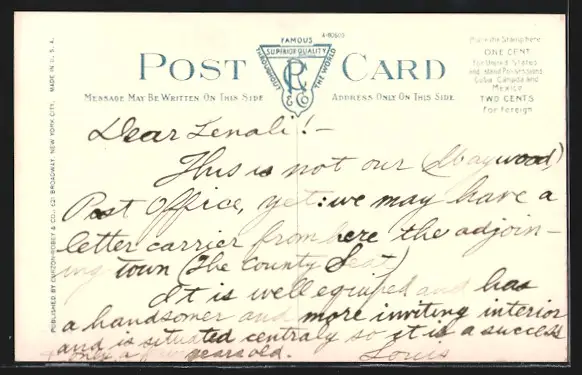 FAMOUS
A-80903
SUPERIOR QUALITY
THROUGHOUT THE WORLD
POST CARD
CR
& Co
MESSAGE MAY BE WRITTEN ON THIS SIDE
ADDRESS ONLY ON THIS SIDE
Place the Stamp here
ONE CENT
For United States
and Island Possessions
Cuba Canada and
Mexico
TWO CENTS
For Foreign
PUBLISHED BY & CO., 621 BROADWAY, NEW YORK CITY. MADE IN U. S. A.
Dear Lenali!-
This is not our (Maywood)
Post Office, yet: we may have a
letter carrier from here the adjoin-
ing town (The County Seat)
It is well equiped and has
a handsomer and more inviting interior
and is situated centraly so it is a success
only a few years old.
Louis